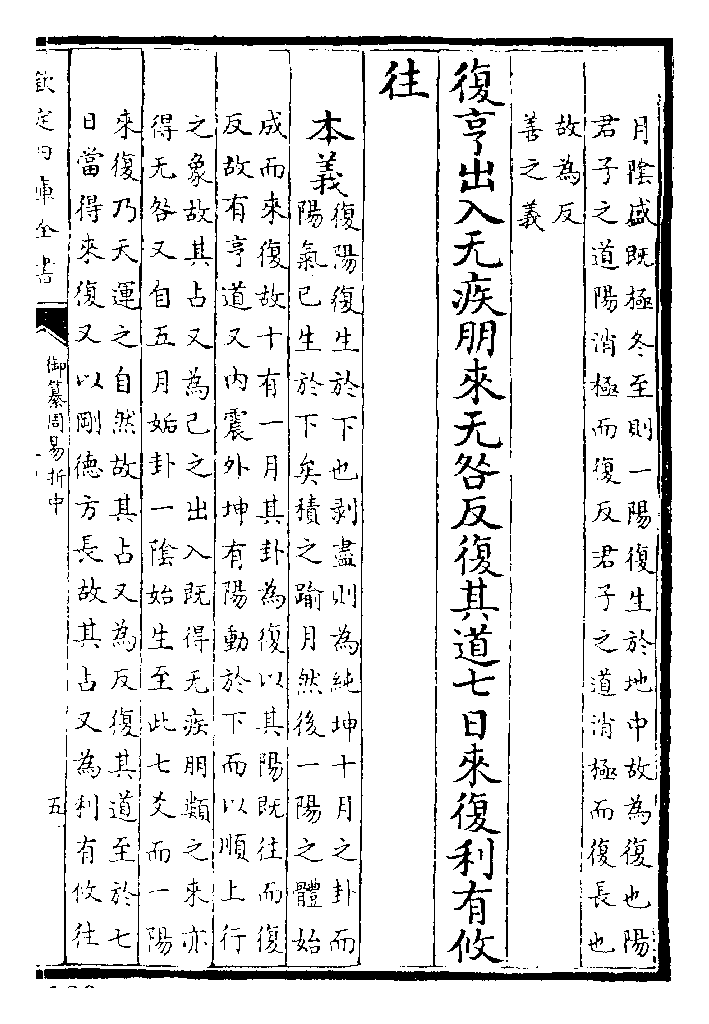 月陰盛既極冬至則一陽復生於地中故為復也陽
君子之道陽消極而復反君子之道消極而復長也
故為反
善之義
復亨出入无疾朋來无咎反復其道七日來復利有攸
往
本義
復陽復生於下也剥盡則為純坤十月之卦而
陽氣已生於下矣積之踰月然後一陽之體始
成而來復故十有一月其卦為復以其陽既往而復
反故有亨道又内震外坤有陽動於下而以順上行
之象故其占又為已之出入既得无疾朋類之來亦
得无咎又自五月姤卦一陰始生至此七爻而一陽
來復乃天運之自然故其占又為反復其道至於七
日當得來復又以剛德方長故其占又為利有攸往
欽定四庫全書
御纂周易折中
五